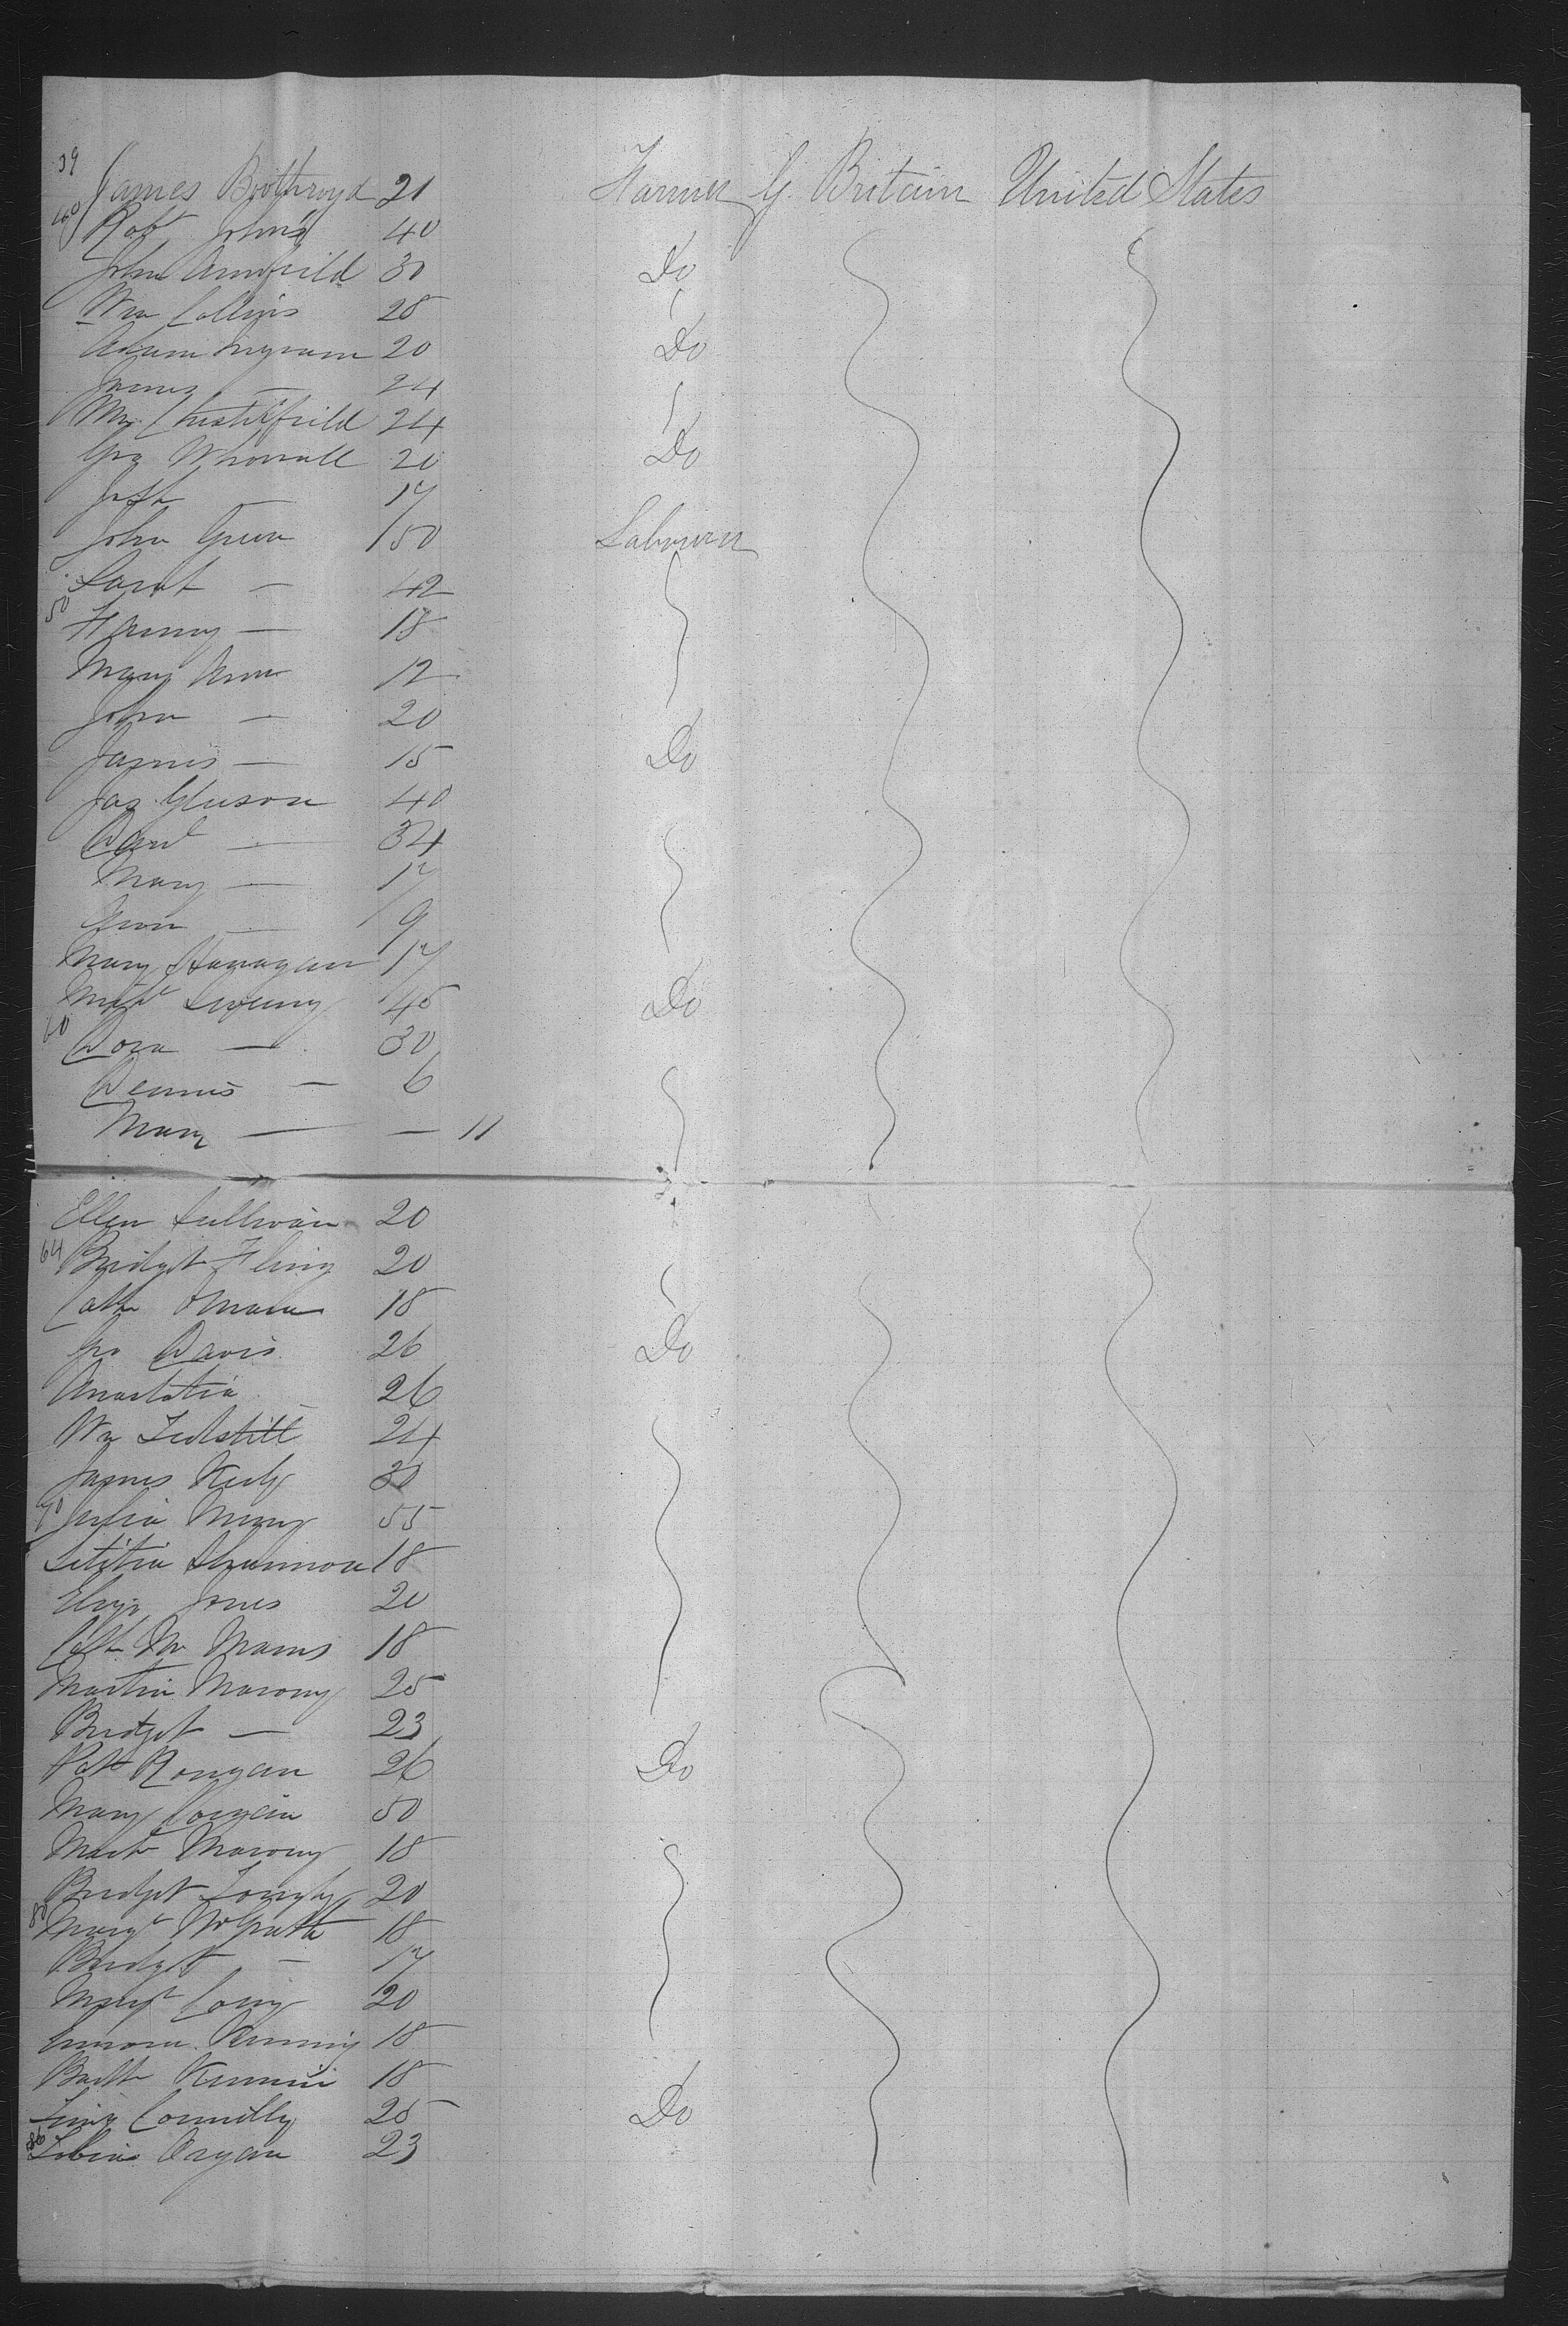 39 James Boothroyd 21 Farmer G. Britain United States
40 Robt Johns 40
John Armfield 30 Do
Wm Collins 28
Adam Ingram 20 Do
James — 24
Wm Chesterfield 24
Geo Whorrall 20 Do
Jos — 17
John Green 50 Labourer
Sarah — 42
50 Fanny — 18
Mary Ann 12
John — 20
James — 15 Do
Jas Gleeson 40
— 34
Mary — 17
Ann — 9
Mary Hanagan 17
Sweeny 45 Do
60 Dora — 30
Dennis — 6
Mary — — 11
Ellen Sullivan 20
64 Bridget Fling 20
Cath Omara 18
Geo Davis 26 Do
Anastatia — 26
Wm 24
James Keily 30
70 Julia 55
Letitia Shannon 18
Eliza Jones 20
Cath 18
Martin Marony 25
Bridget — 23
Patt Rongan 26 Do
Mary Corgain 50
Marony 18
Bridget 20
80 Margt McGrath 18
Bridget — 17
Margt 20
18
Bartt 18
Connilly 25 Do
86 Tobias Organ 23